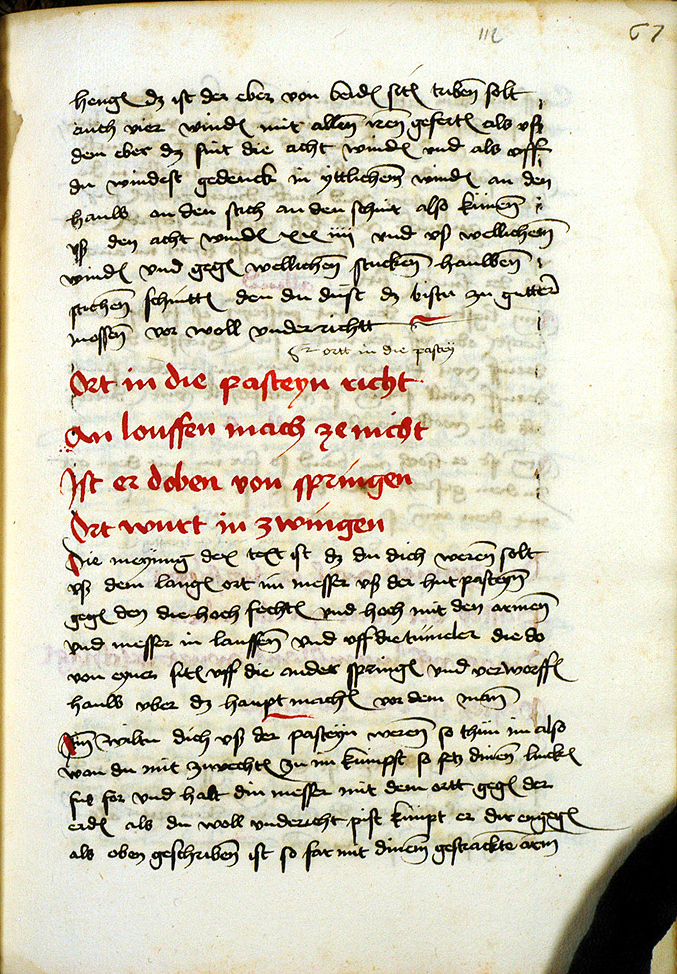 112 67
hengen dz ist der eber von beiden siten triben solt
auch vier winden mit allen iren geferten als uß
dem eber dz sint die acht winden und als offt
du windest gedenck in yttlichem winden an den
haulb an den stich an den schnit also kumen
uß den acht winden xxiiii und uß wellichem
winden und gegen wellichen stucken haulben
stichen schnitten den du düst dz bistu zu gutter
mossen vor woll underrichtt
Er ortt in die pastey
Ort in die pasteyn richt
An louffen mach ze nicht
Ist er doben von springen
Ort wurt in zwingen
Die meynung der text ist dz du dich weren solt
uß dem langen ort im messer uß der hut pasteyn
gegen den die hoch fechten und hoch mit den armen
und messer in lauffen und uff die tümeler die do
von eyner siten uff die ander springen und verworffen
haulb uber dz haupt machen vor dem man
Nun wiltu dich uß der pasteyn weren so thün im also
wan du mit zufechten zu im kumpst so setz dinen lincken
fus for und halt din messer mit dem ortt gegen der
erden als du woll undericht pist kümpt er dir engegen
als oben geschriben ist so far mit dinem gestrackte arm